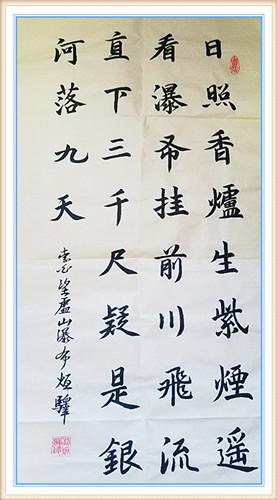 日照香爐生紫煙遥
看瀑布挂前川飛流
直下三千尺疑是銀
河落九天
李白望廬山瀑布